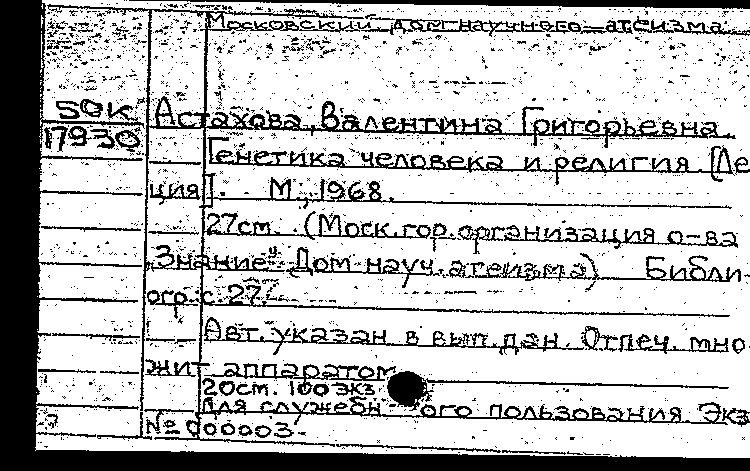 Московский дом научного атеизма
50К
17930
Астахова, Валентина Григорьевна.
Генетика человека и религия. [Ле
ция]. М., 1968.
27см. (Моск.гор.организация о-ва
"Знание" Дом науч.атеизма) Библи-
огр.с.27.
Авт.указан в вып.дан. Отпеч. мно
жит.аппаратом
20см. 100 экз.
Для служебного пользования Экз
№ 000003.